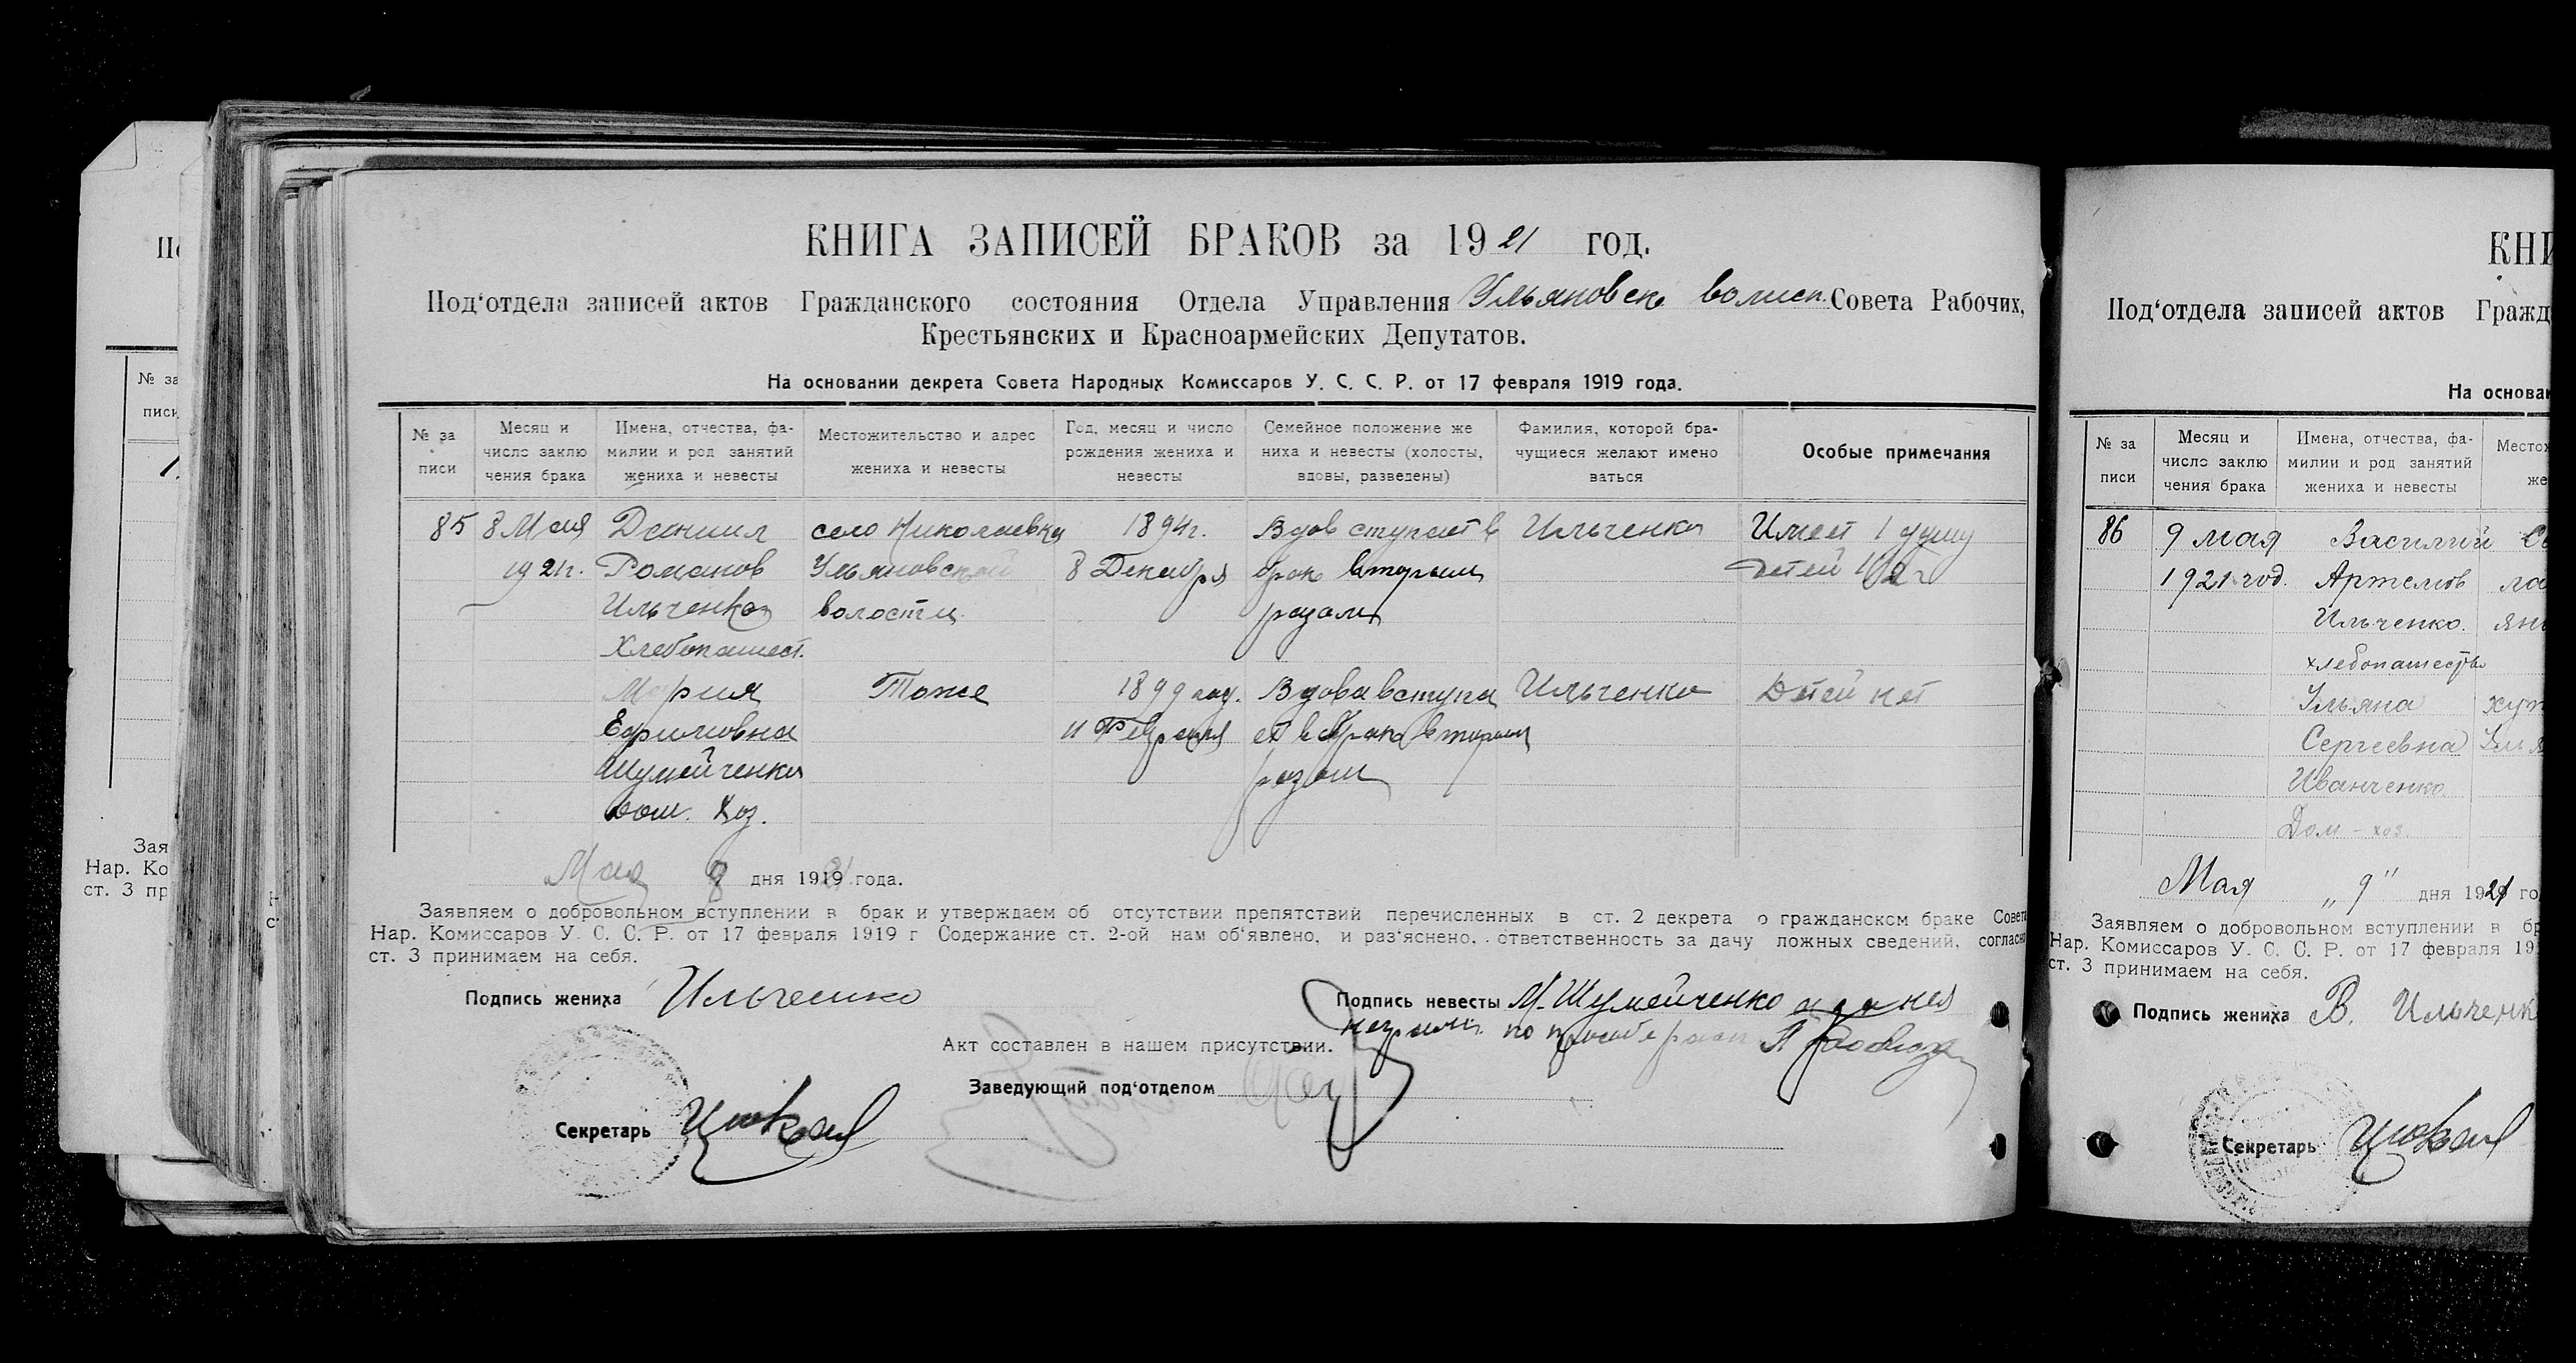 КНИГА ЗАПИСЕЙ БРАКОВ за 1921 год.
Под‘отдела записей актов Гражданского состояния Отдела Управления Ульяновск волисп. Совета Рабочих,
Крестьянских и Красноармейских Депутатов.
На основании декрета Совета Народных Комиссаров У. С. С. Р. от 17 февраля 1919 года.
№ за
писи
Месяц и
число заклю
чения брака
Имена, отчества, фа-
милии и род занятий
жениха и невесты
Местожительство и адрес
жениха и невесты
Год, месяц и число
рождения жениха и
невесты
Семейное положение же
ниха и невесты (холосты,
вдовы, разведены)
Фамилия, которой бра-
чущиеся желают имено
ваться
Особые примечания
85 8 Мая Даниил село Николаевка 1894г. Вдов ступает в Ильченко Имеет 1 душу
1921г. Романов Ульяновской 8 Декабря брак вторым детей
Ильченко волости разом
Хлебопашест.
Мария Тоже 1899 год. Вдова вступа Ильченко Детей нет
Ефимовна 11 Февраля ет в брак вторым
Шумейченко разом
Дом. Хоз.
Мая 8 дня 1921 года.
Заявляем о добровольном вступлении в брак и утверждаем об отсутствии препятствий перечисленных в ст. 2 декрета о гражданском браке Совета
Нар. Комиссаров У. С. С. Р. от 17 февраля 1919 г Содержание ст. 2-ой нам об‘явлено, и раз‘яснено, ответственность за дачу ложных сведений, согласно
ст. 3 принимаем на себя.
Подпись жениха Ильченко
Подпись невесты М. Шумейченко а за нея
неграмот. по просьбе
Акт составлен в нашем присутствии.
Заведующий под‘отделом
Секретарь
КНИ
Под‘отдела записей актов Гражд
На основан
№ за
писи
Месяц и
число заклю
чения брака
Имена, отчества, фа-
милии и род занятий
жениха и невесты
Местож
же
86 9 мая Василий
1921 год. Артемов
Ильченко.
хлебопашество
Ульяна хут
Сергеевна
Иванченко
Дом - хоз.
Мая „9“ дня 1921 го
Заявляем о добровольном вступлении в бр
Нар. Комиссаров У. С. С. Р. от 17 февраля 19
ст. 3 принимаем на себя.
Подпись жениха В. Ильченк
Секретарь
№ за
писи
Зая
Нар. Ко
ст. 3 пр